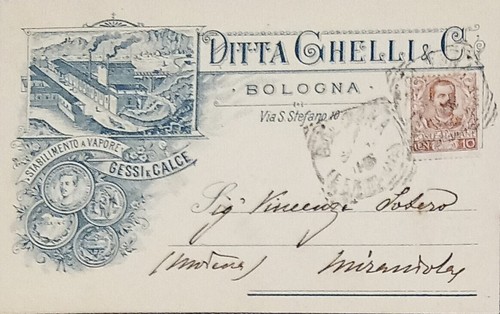 DITTA GHELLI & C.
BOLOGNA
Via S. Stefano 10
STABILIMENTO A VAPORE
GESSI E CALCE
10
Sig. Vincenzo
(Modena) Mirandola